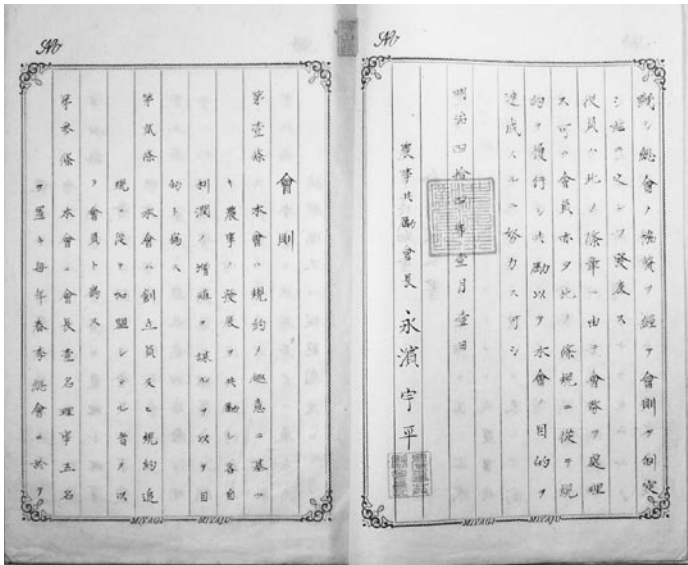 No
シ總會ノ協賛ヲ經テ會則ヲ制定
シ之レヲ發表ス
役員ハ此ノ條章ニ由テ會務ヲ處理
ス可ク會員亦タ此ノ條規ニ從テ規
約ヲ履行シ共勵以テ本會ノ目的ヲ
達成スルニ努力ス可シ
明治四拾四年壹月壹日
農事共勵會長 永濱宇平
MIYAGI MIYAJU
No
會則
第壹條 本會ハ規約ノ趣意ニ基つ
キ農事ノ發展ヲ共勵シ各自
利潤ノ增殖ヲ謀ルヲ以テ目
的ト為ス
第貳條 本會ハ創立員及ヒ規約追
規ニ從テ加盟シタル者ヲ以
テ會員ト為ス
第參條 本會ニ會長壹名理事五名
ヲ置キ每年春季總會ニ於テ
MIYAGI MIYAJU